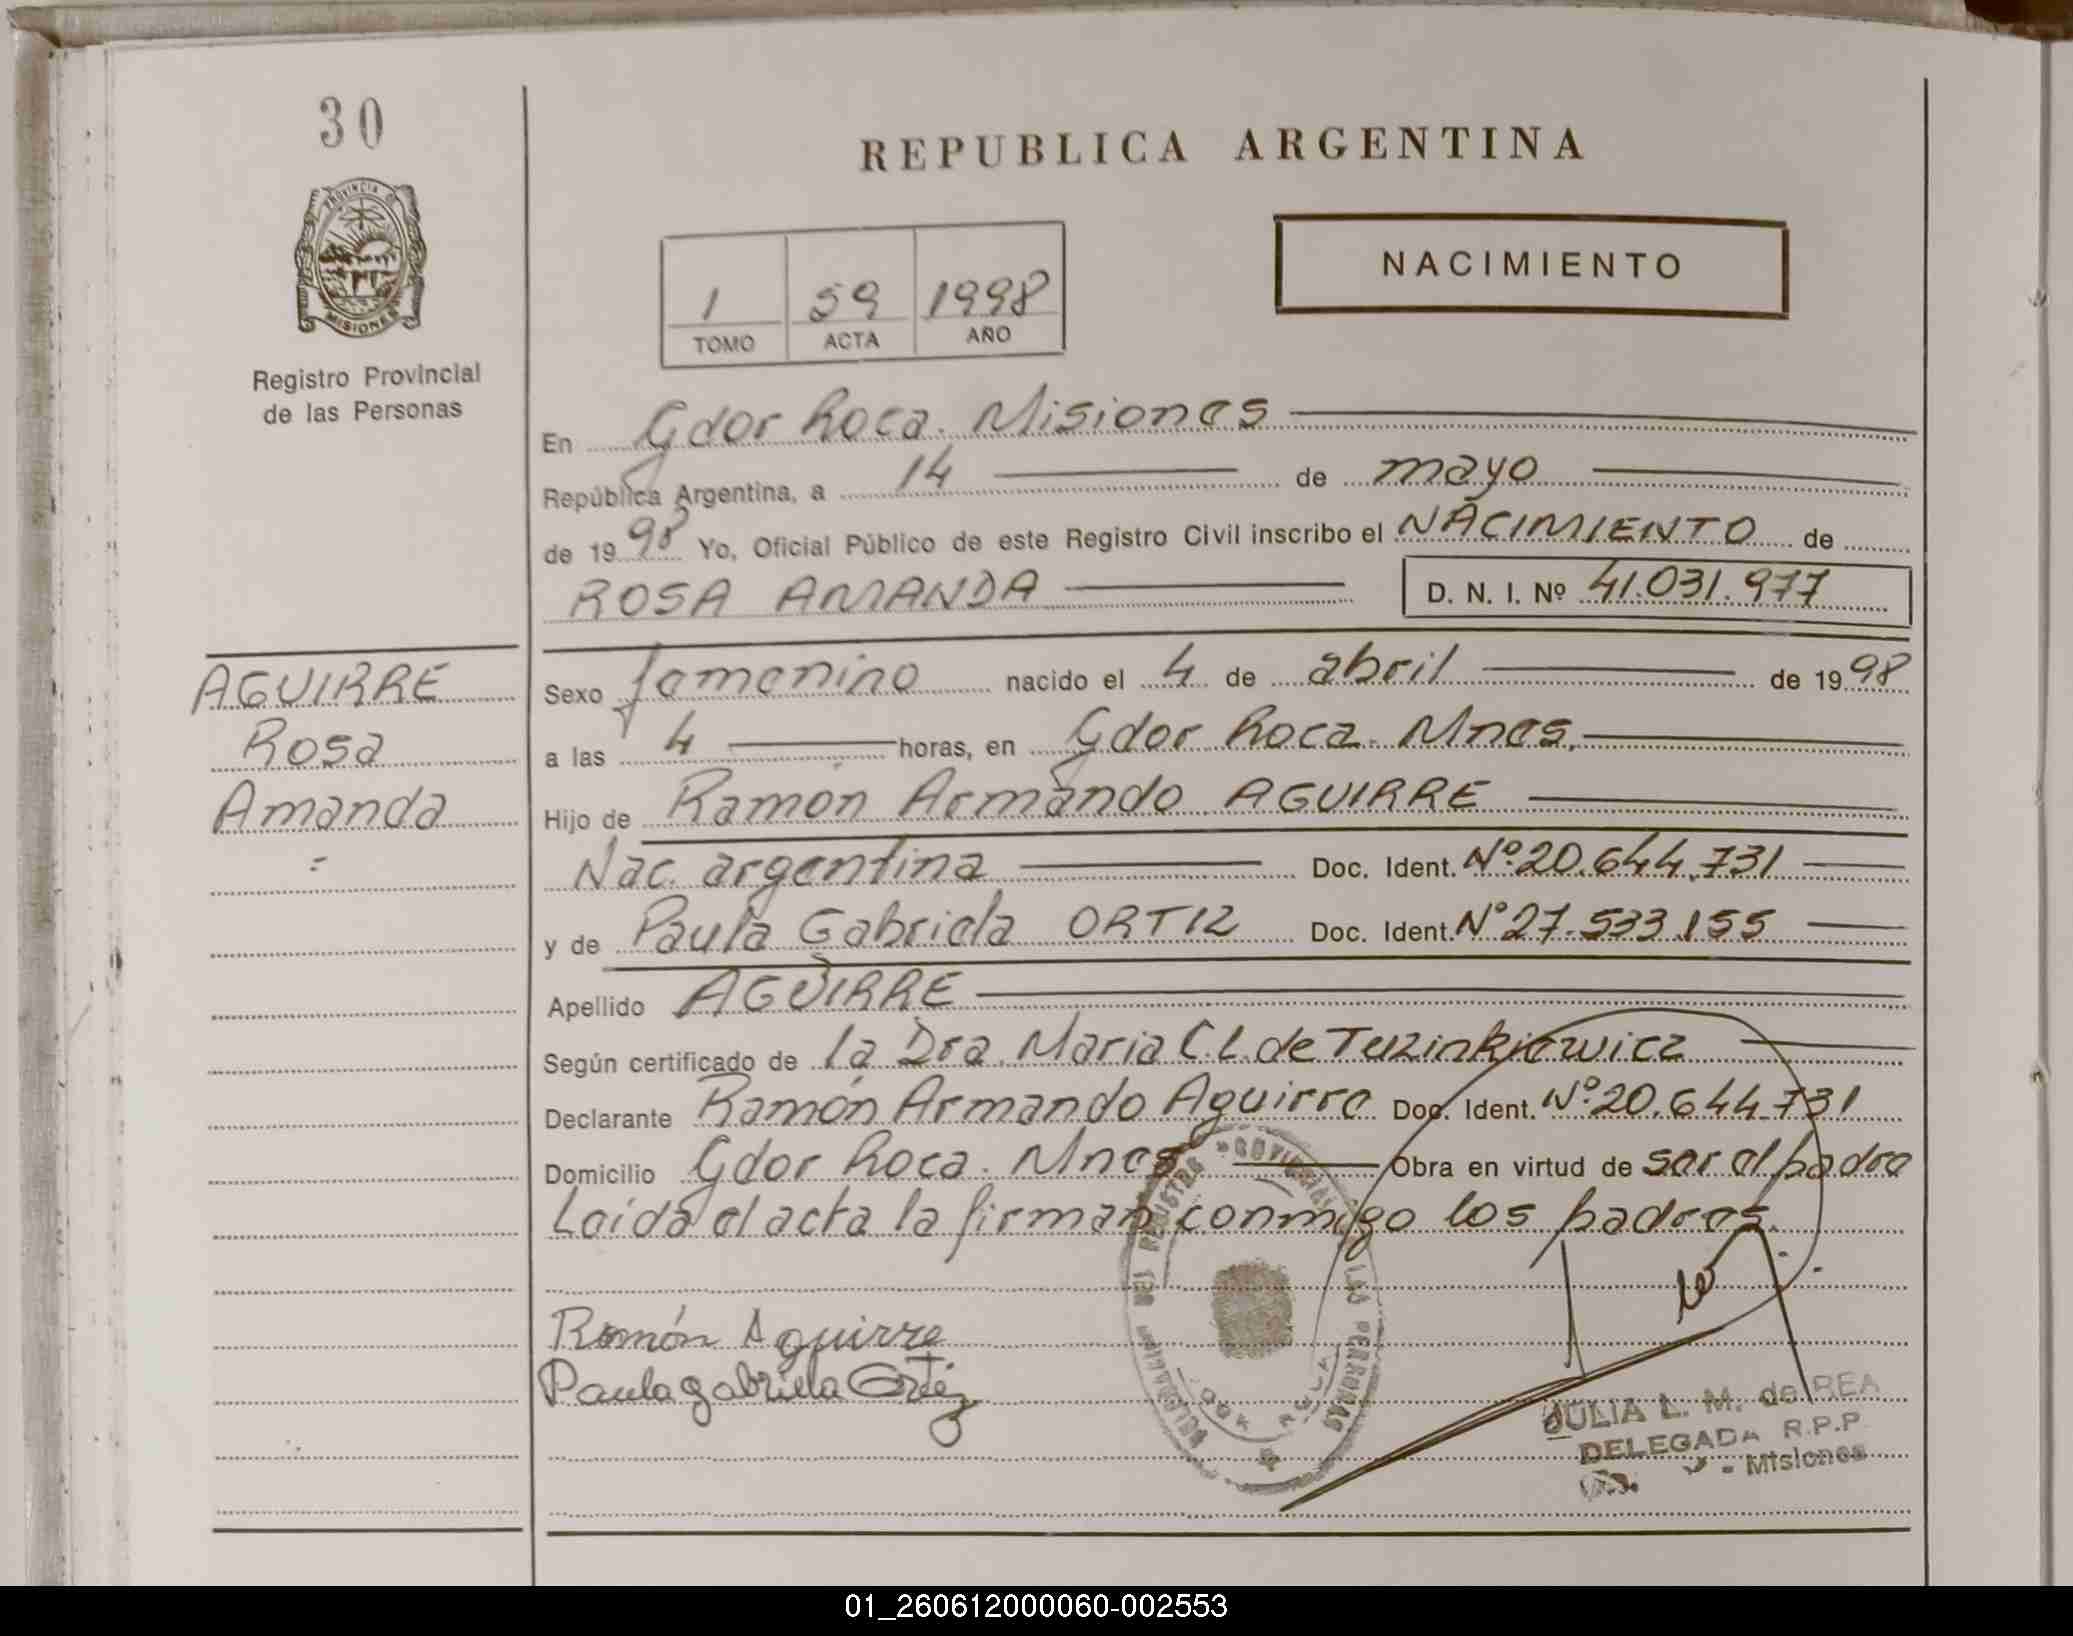 30
REPUBLICA ARGENTINA
PROVINCIA DE
MISIONES
NACIMIENTO
1 59 1998
TOMO ACTA AÑO
Registro Provincial
de las Personas
En Gdor Roca. Misiones
República Argentina, a 14 de mayo
de 1998 Yo, Oficial Público de este Registro Civil inscribo el NACIMIENTO de
ROSA AMANDA D. N. I. Nº 41.031.977
AGUIRRE
Rosa
Amanda
Sexo femenino nacido el 4 de abril de 1998
a las 4 horas, en Gdor Roca. Mnes.
Hijo de Ramón Armando AGUIRRE
Nac. argentina Doc. Ident. Nº 20.644.731
y de Paula Gabriela ORTIZ Doc. Ident. Nº 27.533.155
Apellido AGUIRRE
Según certificado de la Dra. Maria C.L. de Tuzinkiewicz
Declarante Ramón Armando Aguirre Doc. Ident. Nº 20.644.731
Domicilio Gdor Roca. Mnes Obra en virtud de ser el padre
Leída el acta la firman conmigo los padres.
Ramón Aguirre
Paula gabriela Ortiz
REGISTRO PROVINCIAL DE LAS PERSONAS
ROCA
JULIA L. M. de REA
DELEGADA R.P.P
- Misiones
01_260612000060-002553